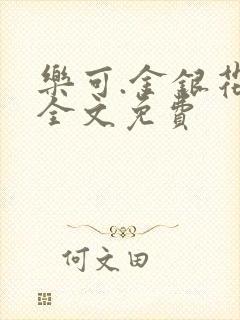 樂可.金銀花
全文免費
何文田